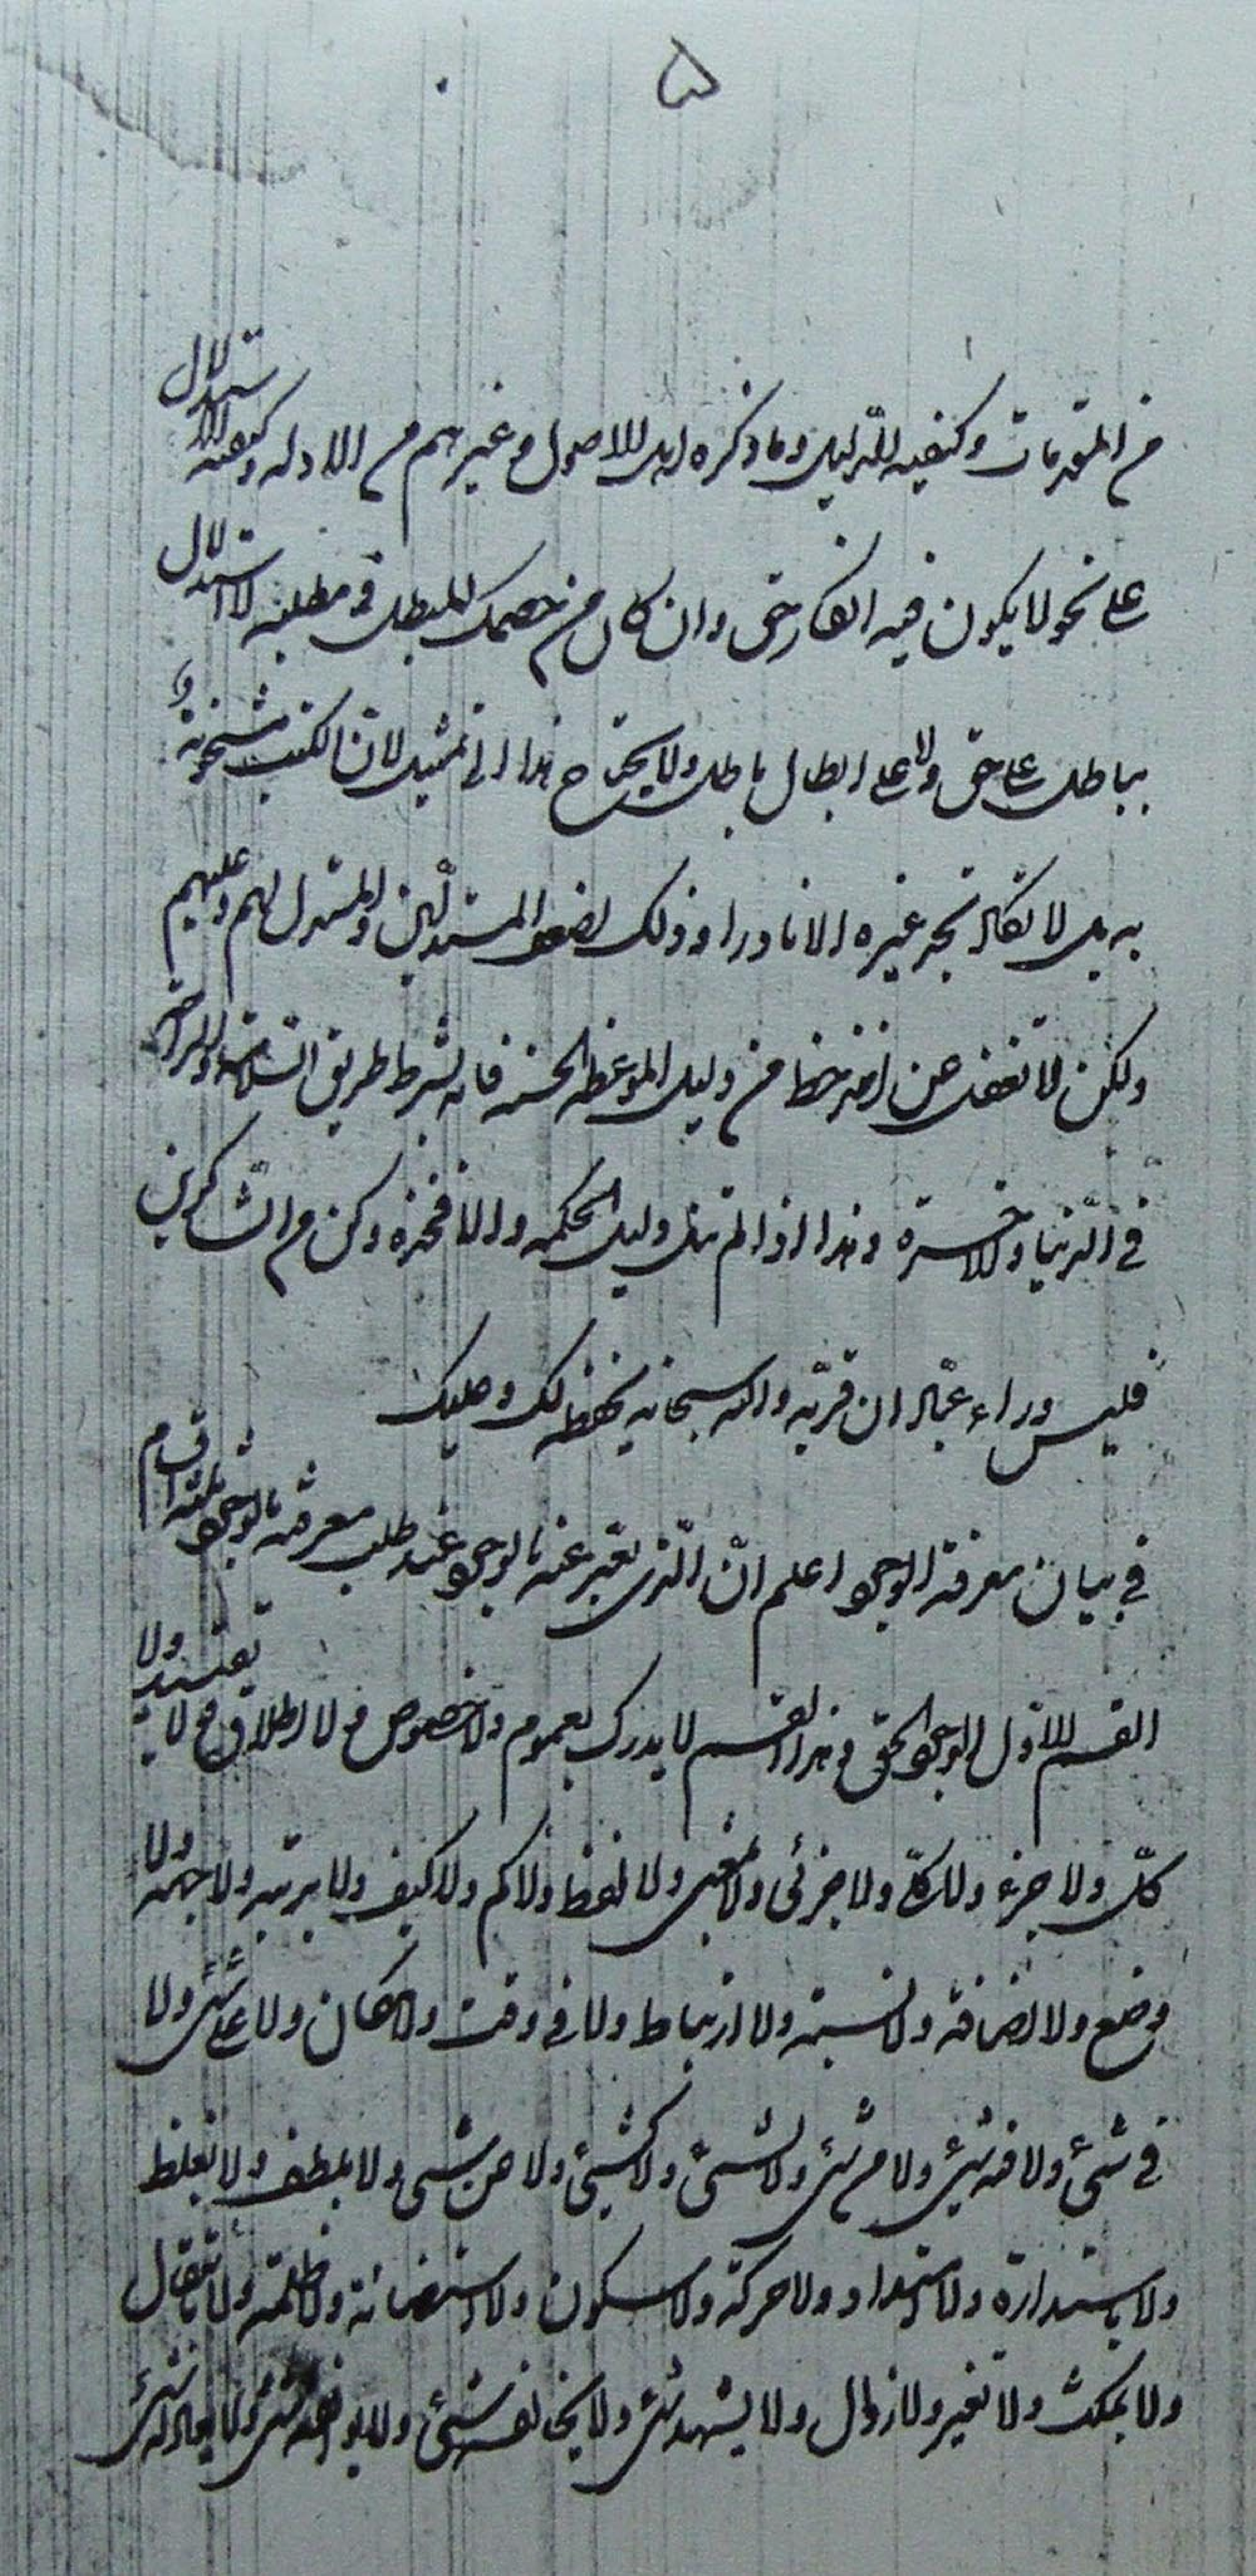 ۵
من المقدمات وكيفيه الدليل وما ذكره اهل الاصول وغيرهم من الادله وكيفيه الاستدلال
على نحو لا يكون فيه انكار حق وان كان من خصمك المبطل في مطلبه لا استدلال
بباطل على حق ولا على ابطال باطل ولا يحتاج هذا الى تمثيل لان الكتب مشحونة
به بل لا تكاد تجد غيره الا نادرا وذلك لضعف المستدلين والمستدل لهم وعليهم
ولكن لا تغفل عن اخذ حظ من دليل الموعظه الحسنه فانه بشرطه طريق السلامة والراحة
في الدنيا والاخرة وهذا اذا لم تنل دليل الحكمه والا فخذه وكن من الشاكرين
فليس وراء عبادان قرية والله سبحانه يحفظ لك وعليك
في بيان معرفة الوجود اعلم ان الذى يعبر عنه بالوجود عند طلب معرفته بالوجود ثلثه اقسام
القسم الاول الوجود الحق وهذا القسم لا يدرك بعموم ولا خصوص ولا اطلاق ولا تقييد ولا
كل ولا جزء ولا كلى ولا جزئى ولا بمعنى ولا لفظ ولا كم ولا كيف ولا برتبه ولا جهة ولا
وضع ولا اضافة ولا نسبة ولا ارتباط ولا في وقت ولا مكان ولا على شئ ولا
في شئ ولا فيه شئ ولا من شئ ولا لشئ ولا كشئ ولا عن شئ ولا بلطف ولا بغلظ
ولا باستدارة ولا امتداد ولا حركة ولا سكون ولا استضائة ولا ظلمة ولا بانتقال
ولا بمكث ولا تغير ولا زوال ولا يشبهه شئ ولا يخالفه شئ ولا يوافقه شئ ولا يعادله شئ